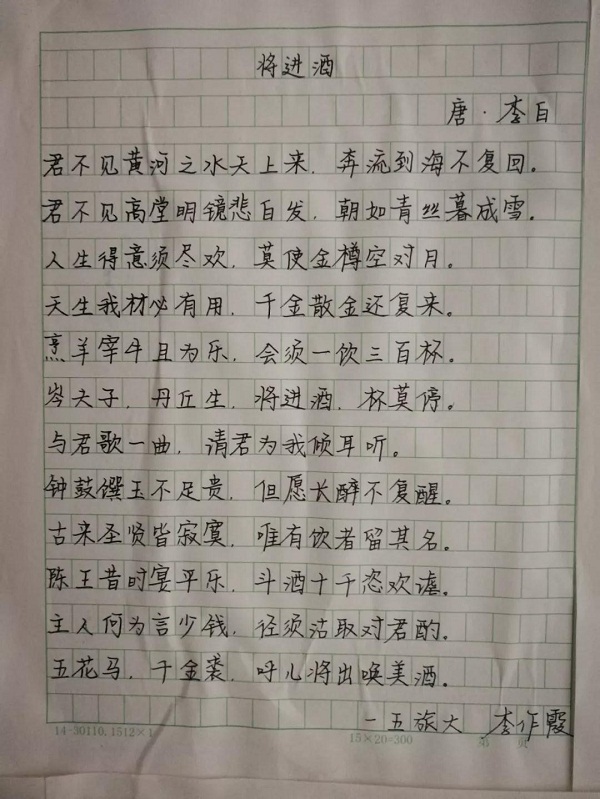 将进酒
唐·李白
君不见黄河之水天上来，奔流到海不复回。
君不见高堂明镜悲白发，朝如青丝暮成雪。
人生得意须尽欢，莫使金樽空对月。
天生我材必有用，千金散金还复来。
烹羊宰牛且为乐，会须一饮三百杯。
岑夫子，丹丘生，将进酒，杯莫停。
与君歌一曲，请君为我倾耳听。
钟鼓馔玉不足贵，但愿长醉不复醒。
古来圣贤皆寂寞，唯有饮者留其名。
陈王昔时宴平乐，斗酒十千恣欢谑。
主人何为言少钱，径须沽取对君酌。
五花马，千金裘，呼儿将出唤美酒。
一五旅大 李作霞
14-30110.1512×1 15×20=300 第 页